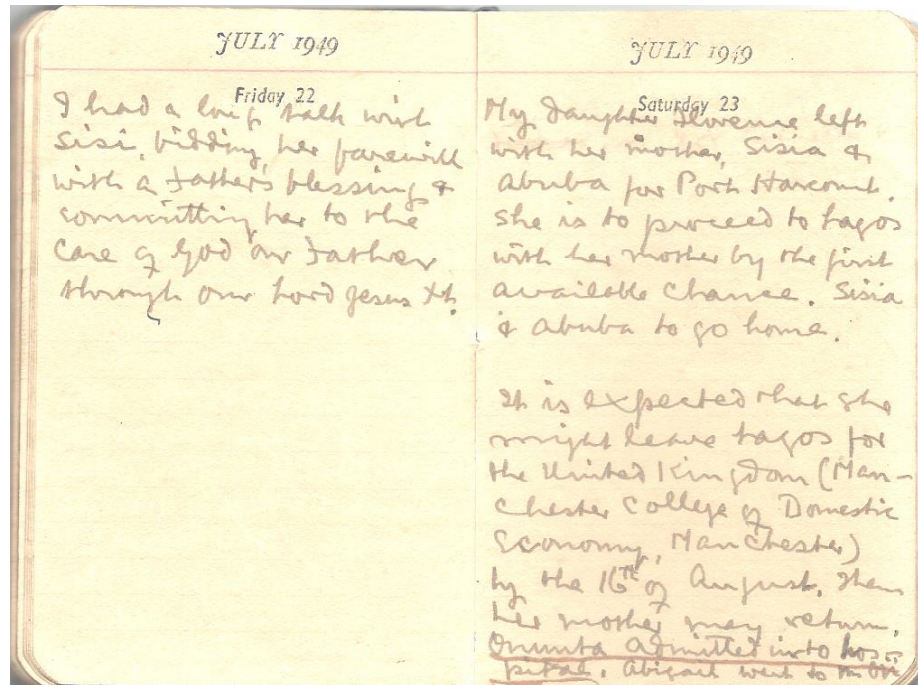 JULY 1949
Friday 22
I had a long talk with
Sisi, bidding her farewell
with a Father's blessing &
committing her to the
care of God our Father
through our Lord Jesus Xt.
JULY 1949
Saturday 23
My daughter Florence left
with her mother, Sisia &
Abuba for Port Harcourt.
She is to proceed to Lagos
with her mother by the first
available chance. Sisia
& Abuba to go home.
It is expected that she
might leave Lagos for
the United Kingdom (Man-
chester College of Domestic
Economy, Manchester)
by the 16th of August. Then
her mother may return.
admitted into hos-
pital. Abigail went to